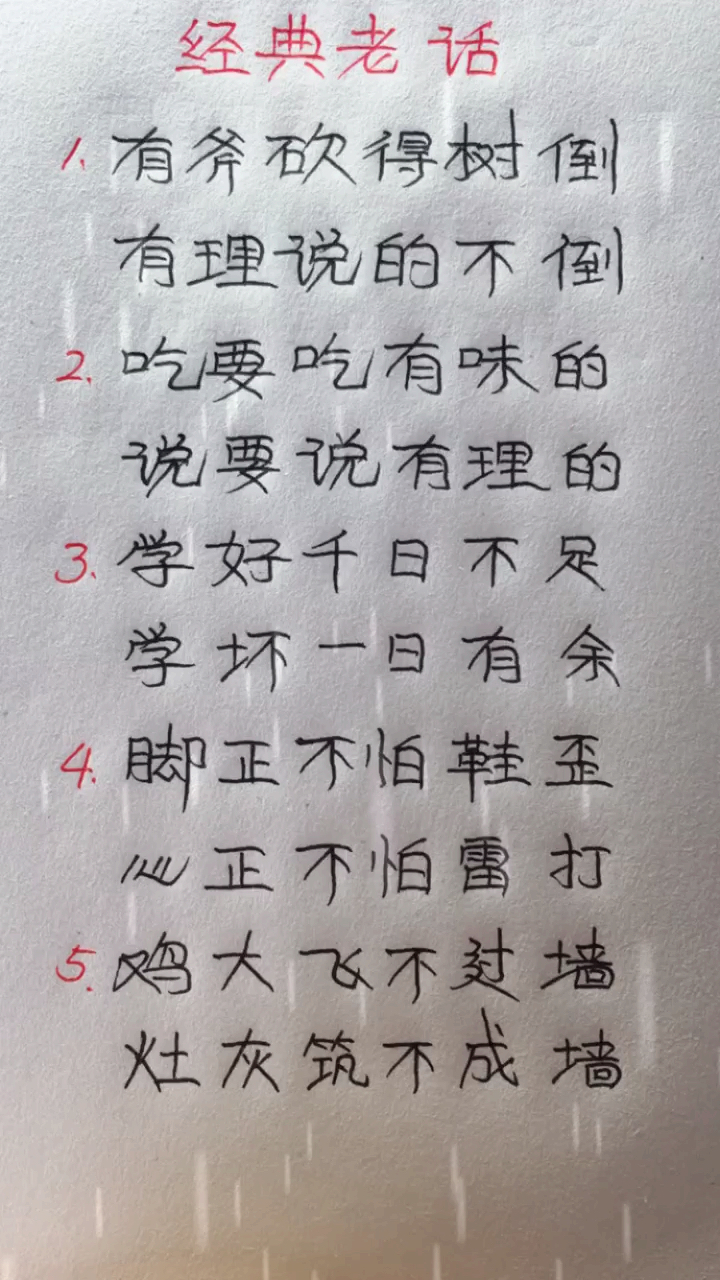 经典老话
1. 有斧砍得树倒
有理说的不倒
2. 吃要吃有味的
说要说有理的
3. 学好千日不足
学坏一日有余
4. 脚正不怕鞋歪
心正不怕雷打
5. 鸡大飞不过墙
灶灰筑不成墙